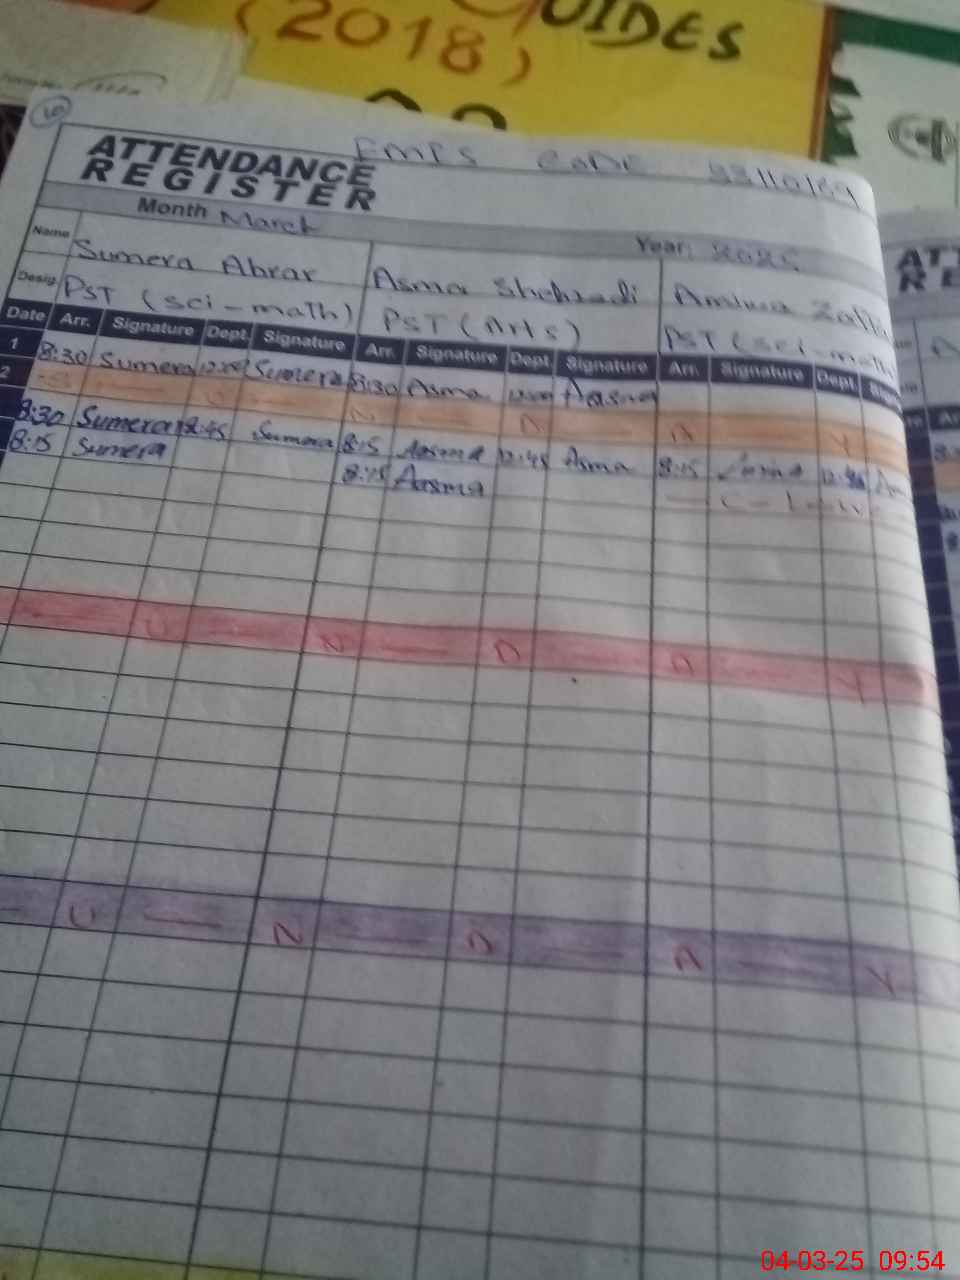 GUIDES
(2018)
ATTENDANCE
REGISTER
Month March
Year: 2025
Name Sumera Abrar Asma Shehzadi
Desig PST (Sci-math) PST (Arts) PST (Sci-math
Date Arr. Signature Dept. Signature Arr. Signature Dept. Signature Arr. Signature Dept. Sign
1 8:30 Sumera Sumera 8:30 Asma Aasma
2 S U N D A Y
8:30 Sumera 12:45 Sumera 8:15 Aasma 12:45 Asma 8:15 12:45
8:15 Sumera 8:15 Aasma
U N D A Y
U N D A Y
04-03-25 09:54